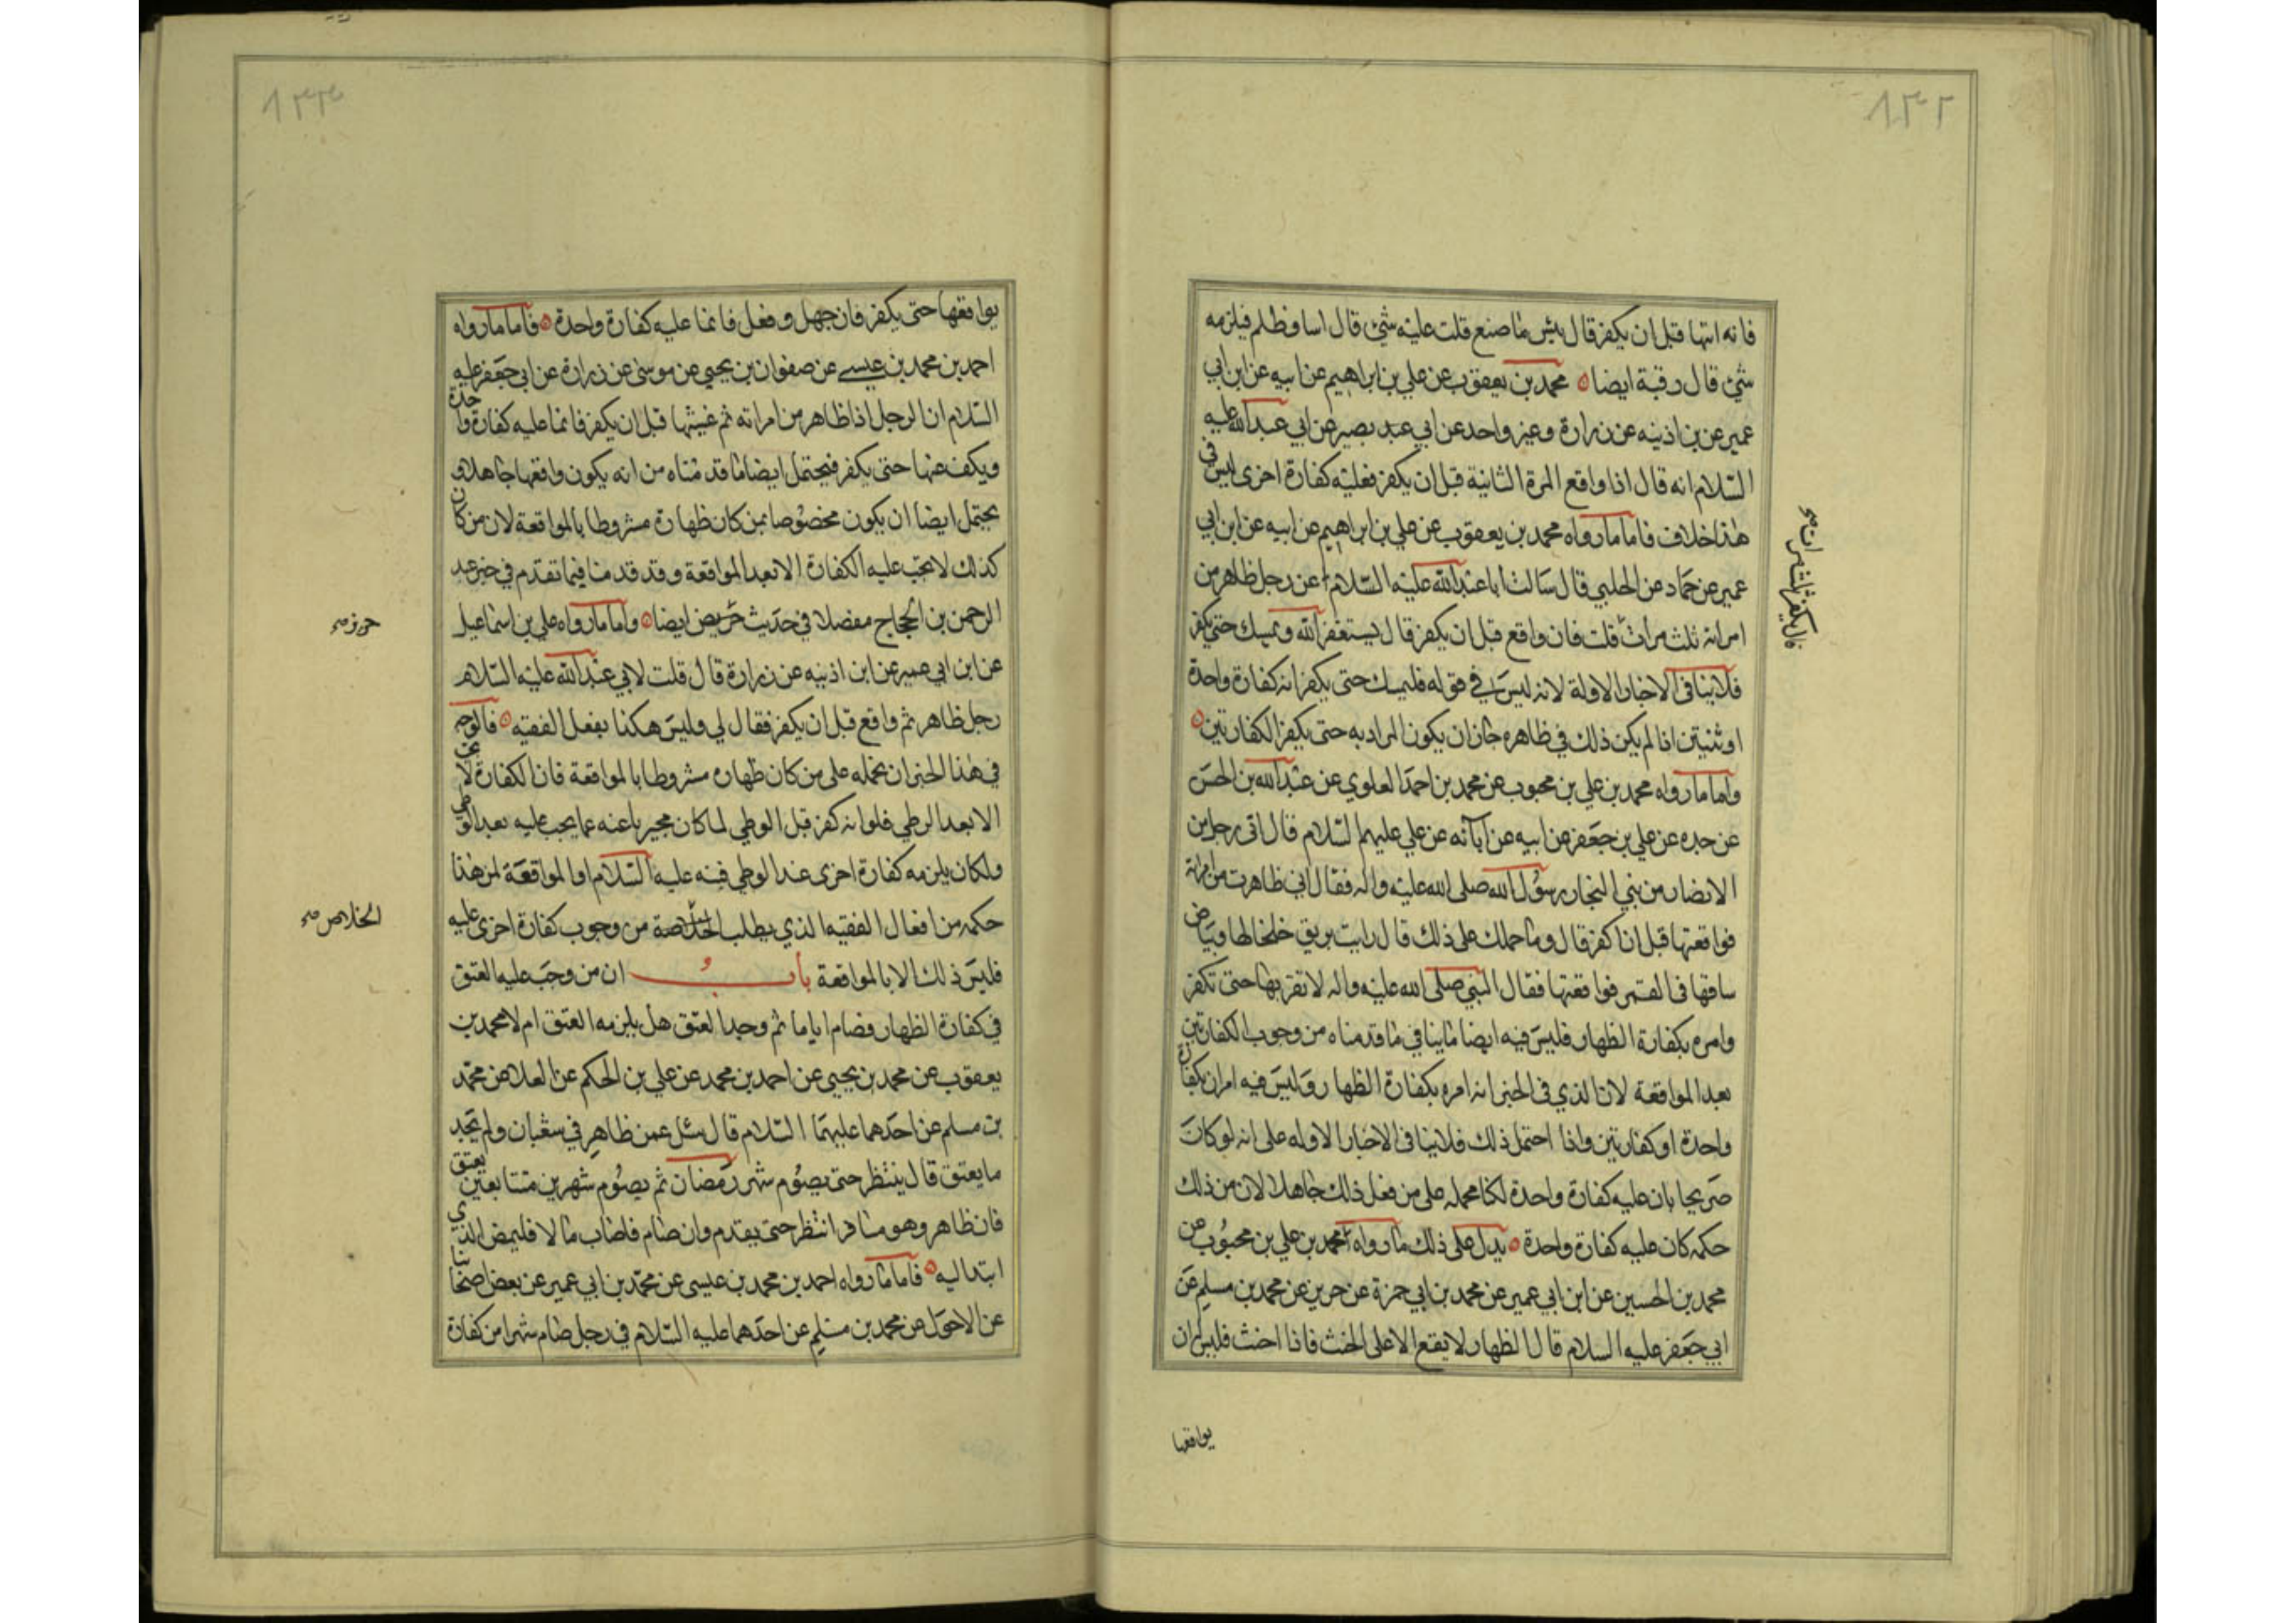 ١٣٢
فانه اتيها قبل ان يكفر قال بئس ما صنع قلت عليه شئ قال اسا وظلم فيلزمه
شئ قال رقبة ايضا محمد بن يعقوب عن علي بن ابراهيم عن ابيه عن ابن ابي
عمير عن بن اذينه عن زرارة وغير واحد عن ابي عبد بصير عن ابي عبد الله عليه
السلام انه قال اذا واقع المرة الثانية قبل ان يكفر فعليه كفارة اخرى ليس في
هذا خلاف فاما ما رواه محمد بن يعقوب عن علي بن ابراهيم عن ابيه عن ابن ابي
عمير عن حماد عن الحلبي قال سالت ابا عبد الله عليه السلام عن رجل ظاهر من
امراته ثلث مرات قلت فان واقع قبل ان يكفر قال يستغفر الله ويمسك حتى يكفر
قال يكفر ثلث مرات صح
فلا ينافي الاخبار الاولة لانه ليس في قوله فليمسك حتى يكفر انه كفارة واحدة
او ثنيتين اذا لم يكن ذلك في ظاهره جاز ان يكون المراد به حتى يكفر الكفارتين
واما ما رواه محمد بن علي بن محبوب عن محمد بن احمد العلوي عن عبد الله بن الحسن
عن جده عن علي بن جعفر عن ابيه عن آبائه عن علي عليهم السلام قال اتى رجل من
الانصار من بني النجار رسول الله صلى الله عليه واله فقال اني ظاهرت من امراته
فواقعتها قبل ان اكفر قال وما حملك على ذلك قال رايت بريق خلخالها وبياض
ساقها في القمر فواقعتها فقال النبي صلى الله عليه واله لا تقربها حتى تكفر
وامره بكفارة الظهار فليس فيه ايضا ما ينافي ما قدمناه من وجوب الكفارتين
بعد المواقعة لان الذي في الخبر انه امره بكفارة الظهار وليس فيه امر ان بكفارة
واحدة او كفارتين واذا احتمل ذلك فلا ينافي الاخبار الاوله على انه لو كان
صريحا بان عليه كفارة واحدة لكنا نحمله على من فعل ذلك جاهلا لان من ذلك
حكمه كان عليه كفارة واحدة يدل على ذلك ما رواه محمد بن علي بن محبوب عن
محمد بن الحسين عن ابن ابي عمير عن محمد بن ابي حمزة عن حريز عن محمد بن مسلم عن
ابي جعفر عليه السلام قال الظهار لا يقع الا على الحنث فاذا احنث فليس له ان
يواقعها
١٣٣
يواقعها حتى يكفر فان جهل وفعل فانما عليه كفارة واحدة فاما ما رواه
احمد بن محمد بن عيسى عن صفوان بن يحيى عن موسى عن زرارة عن ابي جعفر عليه
السلام ان الرجل اذا ظاهر من امراته ثم غشيها قبل ان يكفر فانما عليه كفارة واحدة
ويكف عنها حتى يكفر فيحتمل ايضا ما قدمناه من انه يكون واقعها جاهلا و
يحتمل ايضا ان يكون مخصوصا بمن كان ظهارة مشروطا بالمواقعة لان من كان
كذلك لا تجب عليه الكفارة الا بعد المواقعة وقد قدمنا فيما تقدم في خبر عبد
الرحمن بن الحجاج مفصلا في حديث حريض ايضا واما ما رواه علي بن اسماعيل
حريز صح
عن ابن ابي عمير عن ابن اذنيه عن زرارة قال قلت لابي عبد الله عليه السلام
رجل ظاهر ثم واقع قبل ان يكفر فقال لي وليس هكذا يفعل الفقيه فالوجه
في هذا الخبر ان نحمله على من كان ظهاره مشروطا بالمواقعة فان الكفارة لا تجب
الا بعد الوطي فلو انه كفر قبل الوطي لما كان مجيزيا عنه عما يجب عليه بعد الوطي
ولكان يلزمه كفارة اخرى عند الوطي فنبه عليه السلام او المواقعة لمن هذا
حكمه من افعال الفقيه الذي يطلب الخلاصة من وجوب كفارة اخرى عليه
الخلاص صح
فليس ذلك الا بالمواقعة باب ان من وجب عليه العتق
في كفارة الظهار فصام اياما ثم وجد العتق هل يلزمه العتق ام لا محمد بن
يعقوب عن محمد بن يحيى عن احمد بن محمد عن علي بن الحكم عن العلا عن محمد
بن مسلم عن احدهما عليهما السلام قال سئل عمن ظاهر في شعبان ولم يجد
ما يعتق قال ينتظر حتى يصوم شهر رمضان ثم يصوم شهرين متتابعين
فان ظاهر وهو مسافر انتظر حتى يقدم وان صام فاصاب مالا فليمض الذي
ابتدا ليه فاما ما رواه احمد بن محمد بن عيسى عن محمد بن ابي عمير عن بعض اصحابنا
عن الاحول عن محمد بن مسلم عن احدهما عليه السلام في رجل صام شهرا من كفارة